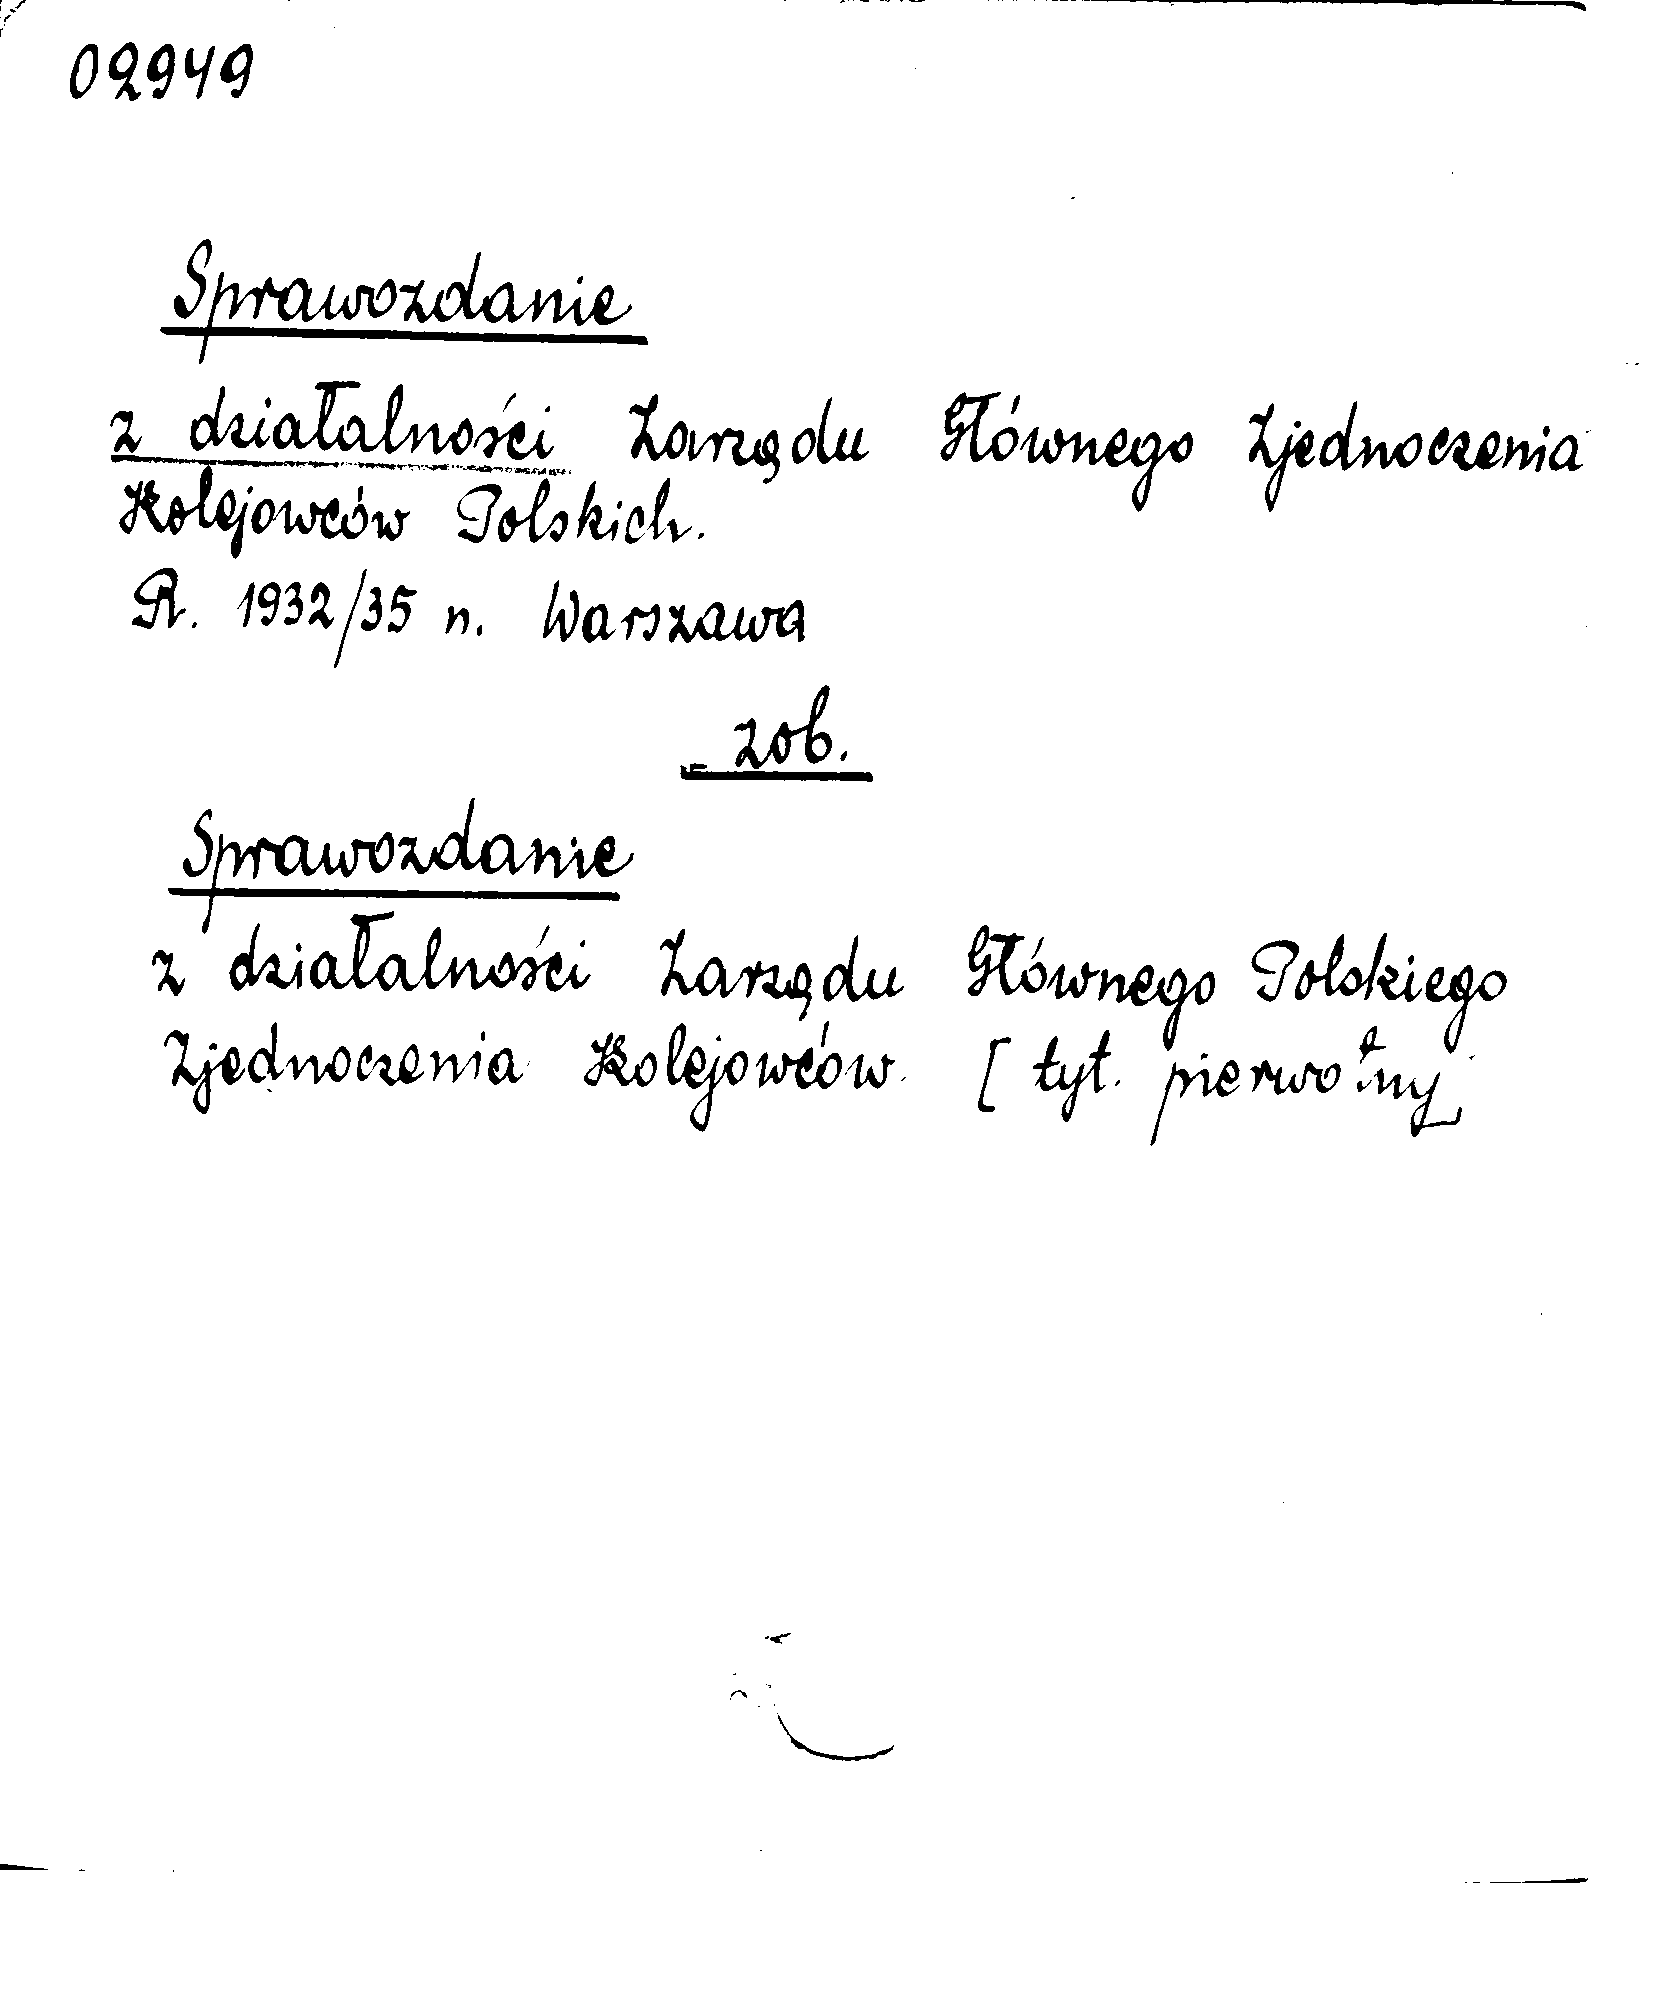 02949
Sprawozdanie
z działalności Zarządu Głównego Zjednoczenia
Kolejowców Polskich.
R. 1932/35 n. Warszawa
zob.
Sprawozdanie
z działalności Zarządu Głównego Polskiego
Zjednoczenia Kolejowców. [tyt. pierwotny]